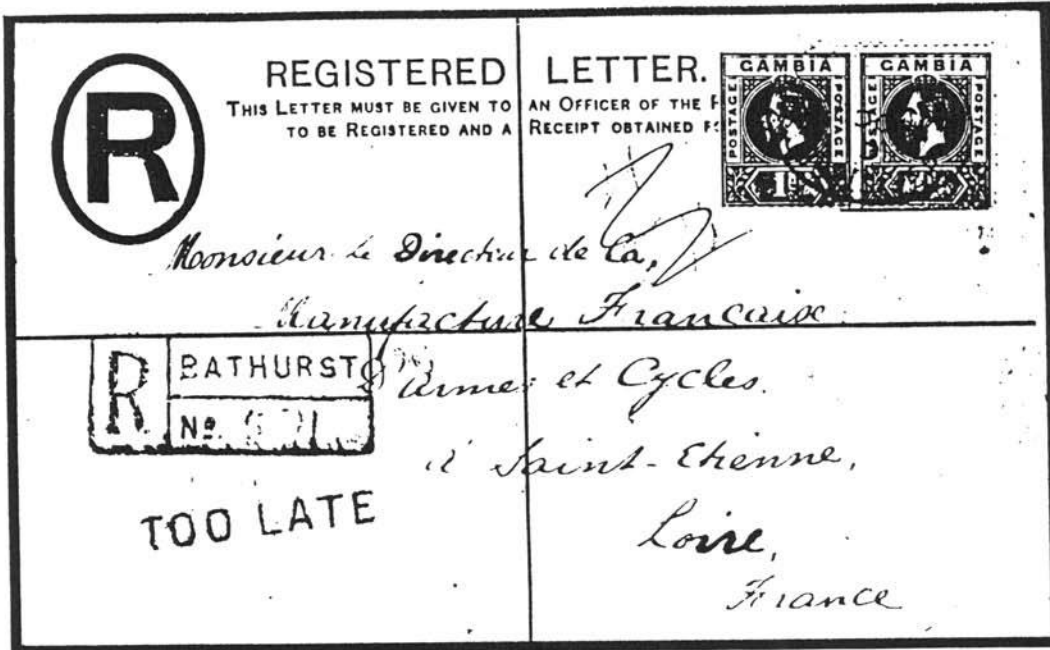 R
REGISTERED LETTER.
THIS LETTER MUST BE GIVEN TO AN OFFICER OF THE
TO BE REGISTERED AND A RECEIPT OBTAINED
GAMBIA
POSTAGE POSTAGE
1
GAMBIA
POSTAGE POSTAGE
Monsieur le Directeur de la,
Manufacture Française
d'armes et Cycles.
à Saint-Etienne,
Loire,
France
R BATHURST
No
TOO LATE